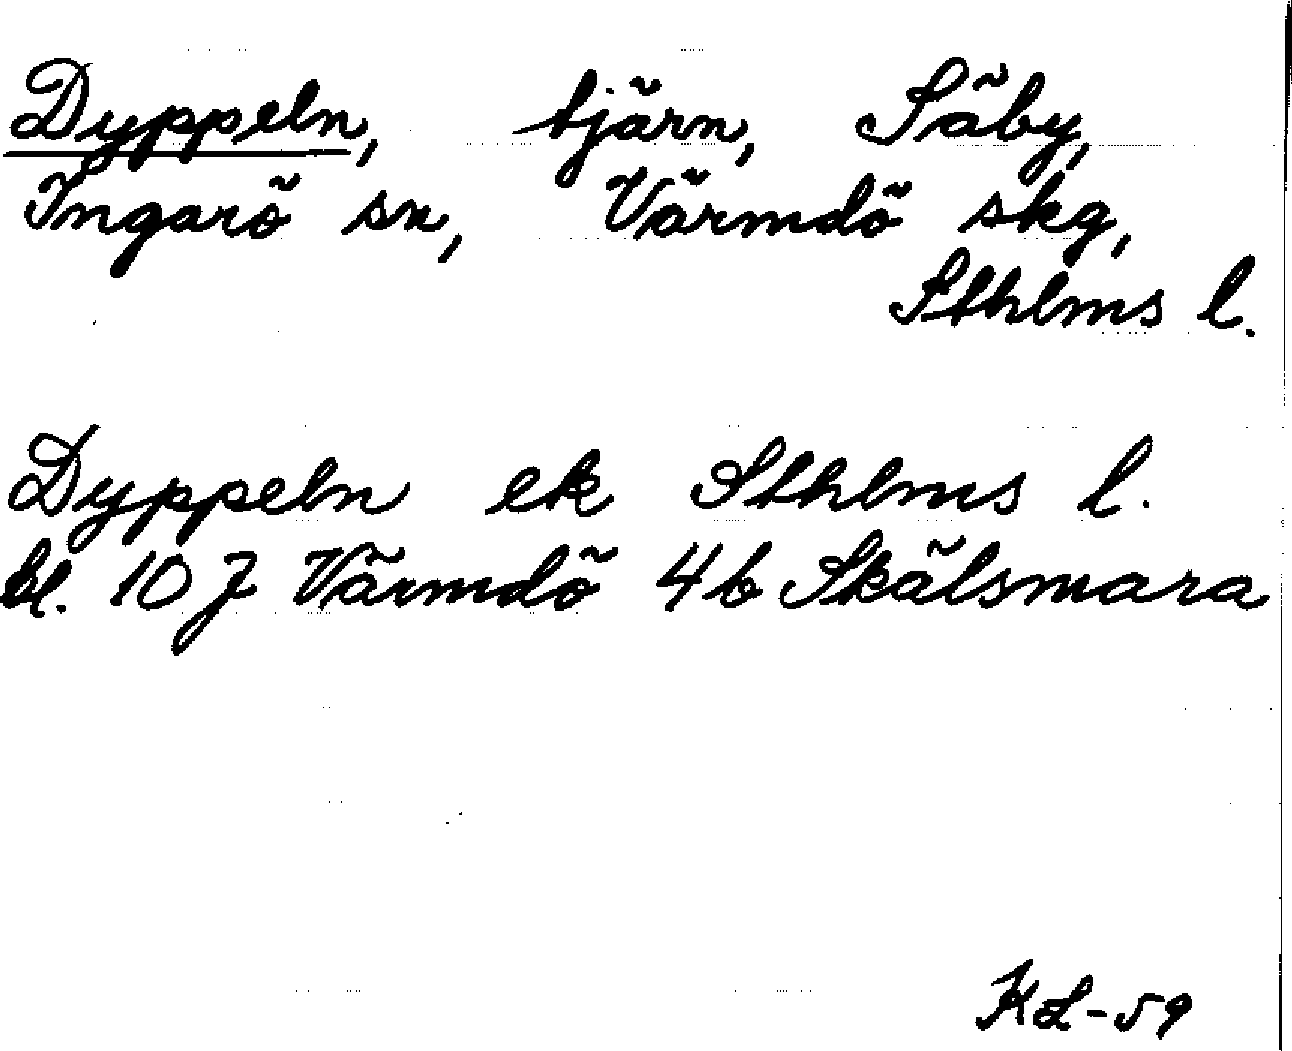 Dyppeln, tjärn, Säby,
Ingarö sn, Värmdö skg,
Sthlms l.
Dyppeln ek Sthlms l.
bl. 10 J Värmdö 4b Skälsmara
KL-59